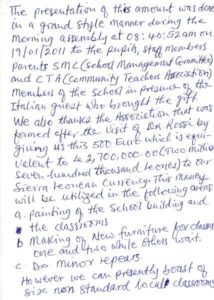 The presentation of this amount was done
in a grand style manner during the
morning assembly at 08:40:52am on
19/01/2011 to the pupils, staff members
parents SMC (School Management Committee)
and CTA (Community Teachers Association)
Members of the School in presence of the
Italian guest who brought the gift
We also thanks the Association that was
formed after the visit of Dr. Rossi by
giving us this 500 Euro which is equi-
valent to Le 2,700,000.00 (Two million
seven hundred thousand leones) to our
Sierra Leonean Currency. This money
will be utilized in the following areas
a. painting of the School building and
the classrooms
b Making of New furniture for classes
one and two while others want.
c. Do minor repairs
However we can presently boast of
six non standard local classrooms